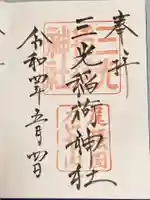 奉拝
三光稲荷神社
令和四年五月四日
三光
神社